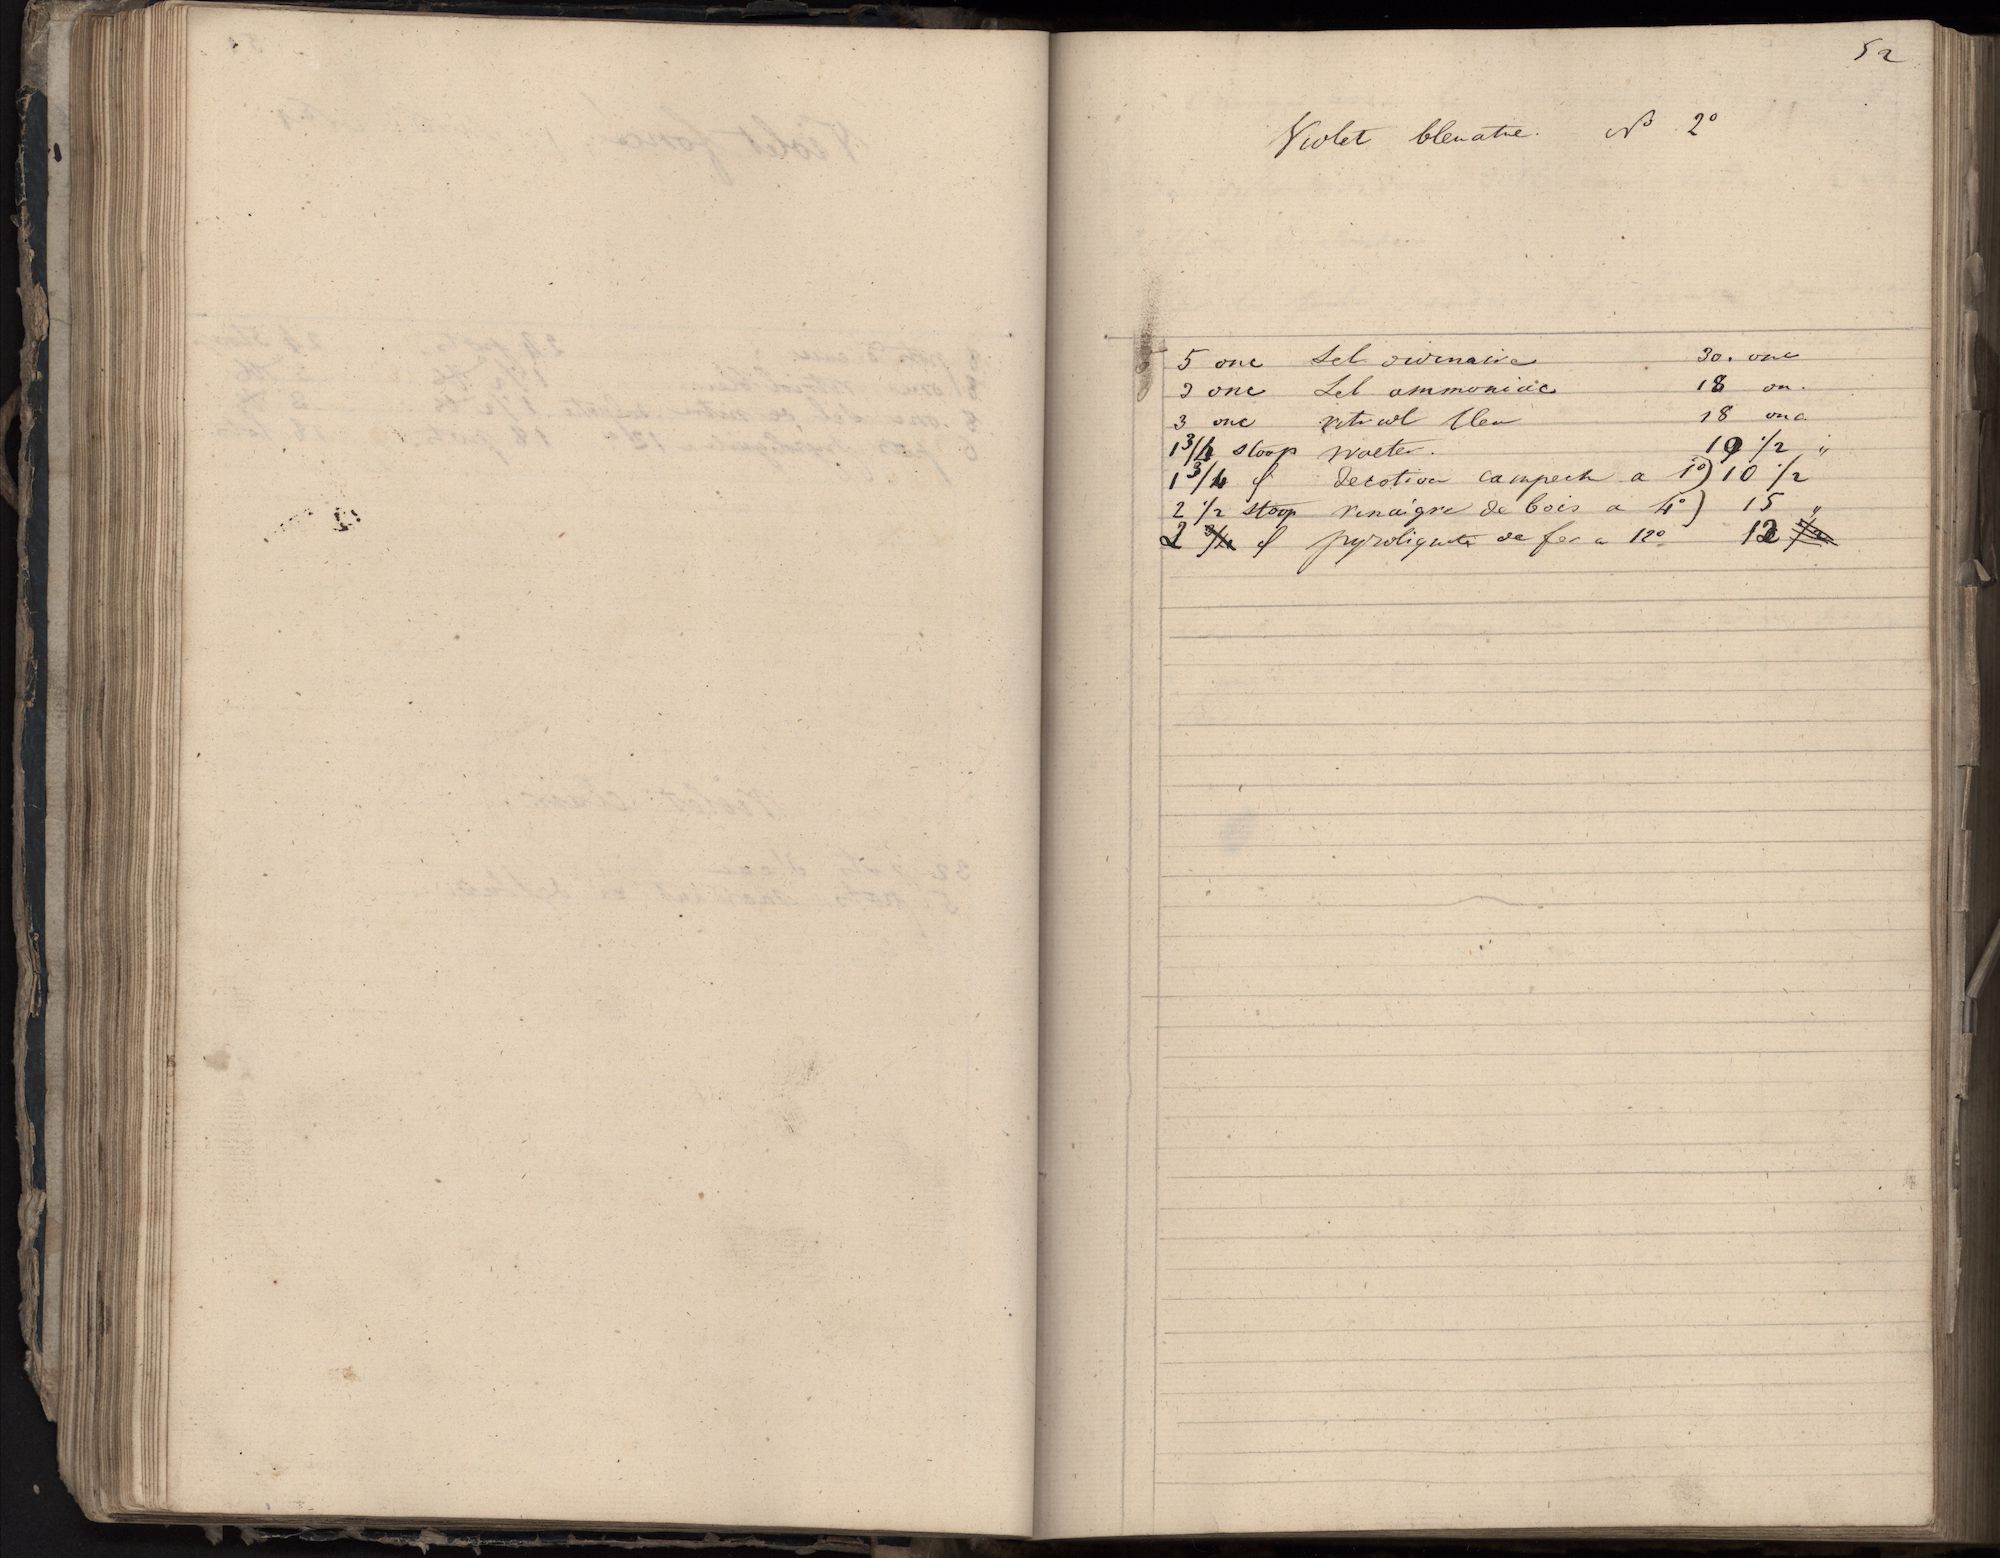 52
Violet bleuatre. No 2o
5 onc Sel ordinaire 30. onc
3 onc Sel ammoniac 18 on.
3 onc vitriol bleu 18 onc.
1 3/4 stoop water. 10 1/2 "
1 3/4 d decotion campech a 1o) 10 1/2
2 1/2 stoop vinaigre de bois a 4o) 15 "
2 3/4 d pyrolignite de fer a 12o 12 1/2